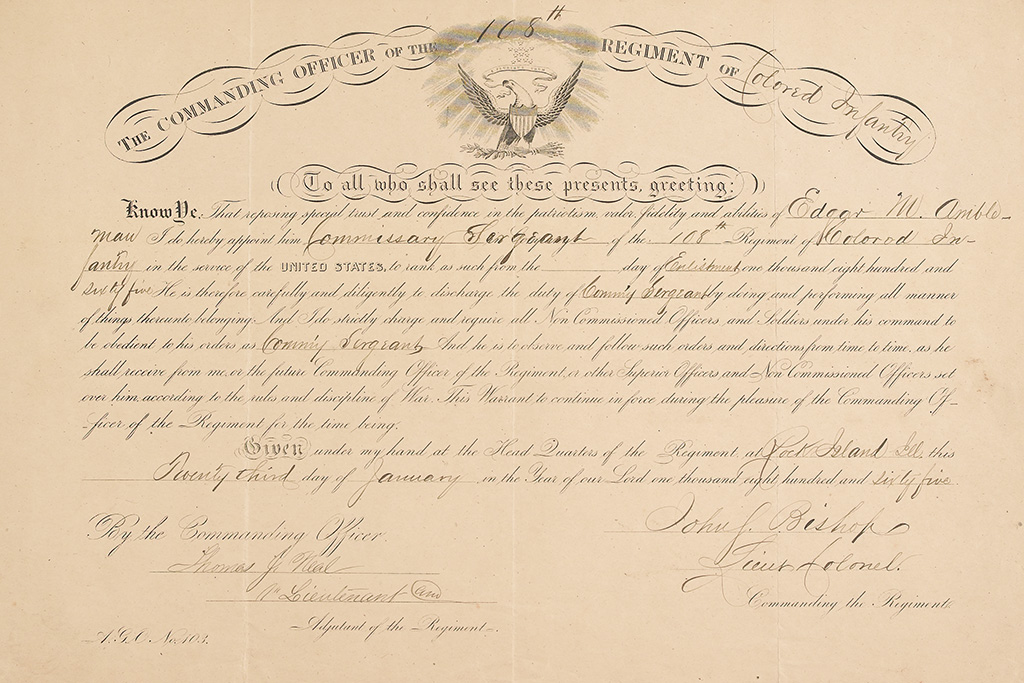 The Commanding Officer of the 108th Regiment of Colored Infantry
To all who shall see these presents, greeting:
Know Ye, That reposing special trust and confidence in the patriotism, valor, fidelity and abilities of Edgar M. Amble-
man I do hereby appoint him Commissary Sergeant of the 108th Regiment of Colored In-
fantry in the service of the UNITED STATES, to rank as such from the day of Enlistment one thousand eight hundred and
sixty five He is therefore carefully and diligently to discharge the duty of Comm'y Sergeant by doing and performing all manner
of things thereunto belonging. And I do strictly charge and require all Non Commissioned Officers and Soldiers under his command to
be obedient to his orders as Comm'y Sergeant And he is to observe and follow such orders and directions from time to time, as he
shall receive from me, or the future Commanding Officer of the Regiment, or other Superior Officers and Non Commissioned Officers set
over him, according to the rules and discipline of War. This Warrant to continue in force during the pleasure of the Commanding Of-
ficer of the Regiment for the time being.
Given under my hand at the Head Quarters of the Regiment, at Rock Island Ill. this
Twenty third day of January in the Year of our Lord one thousand eight hundred and sixty five
John J. Bishop
By the Commanding Officer.
Lieut Colonel.
Thomas J. Neal
1st Lieutenant and
Commanding the Regiment.
Adjutant of the Regiment.
A.G.O. No. 103.